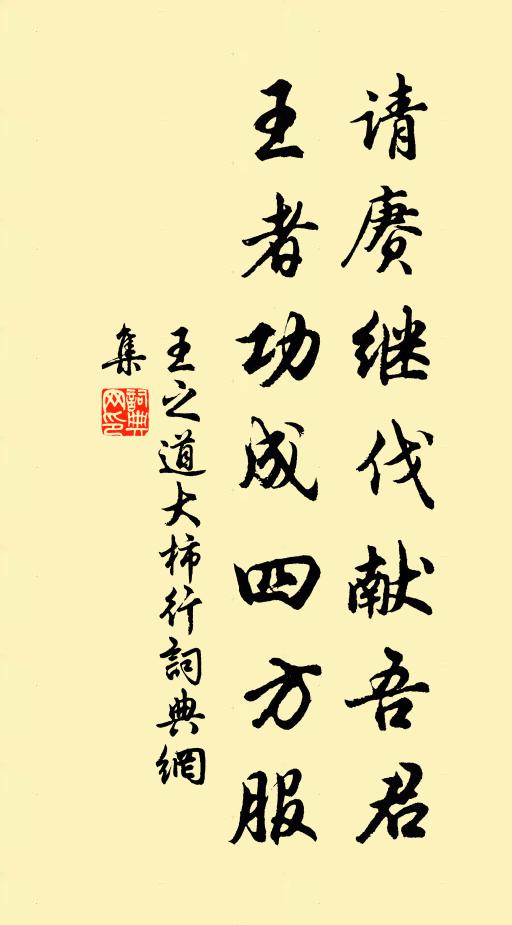 请赓继伐献吾君
王者功成四方服
王之道大柿行詞典網
集
詞典
网印